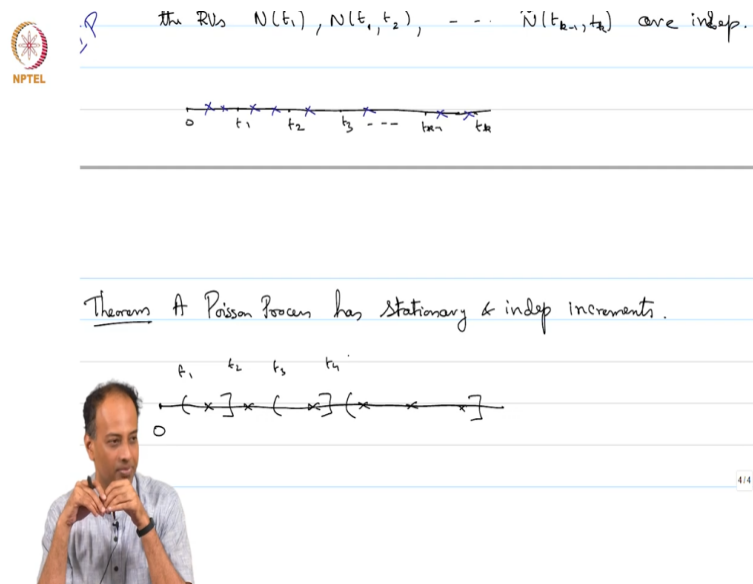 I.P the RVs N(t₁), N(t₁,t₂), - - - Ñ(t_{k-1}, t_k) are indep.
NPTEL
0 t₁ t₂ t₃ - - - t_{k-1} t_k
Theorem A Poisson Process has stationary & indep increments.
t₁ t₂ t₃ t₄
0
4/4